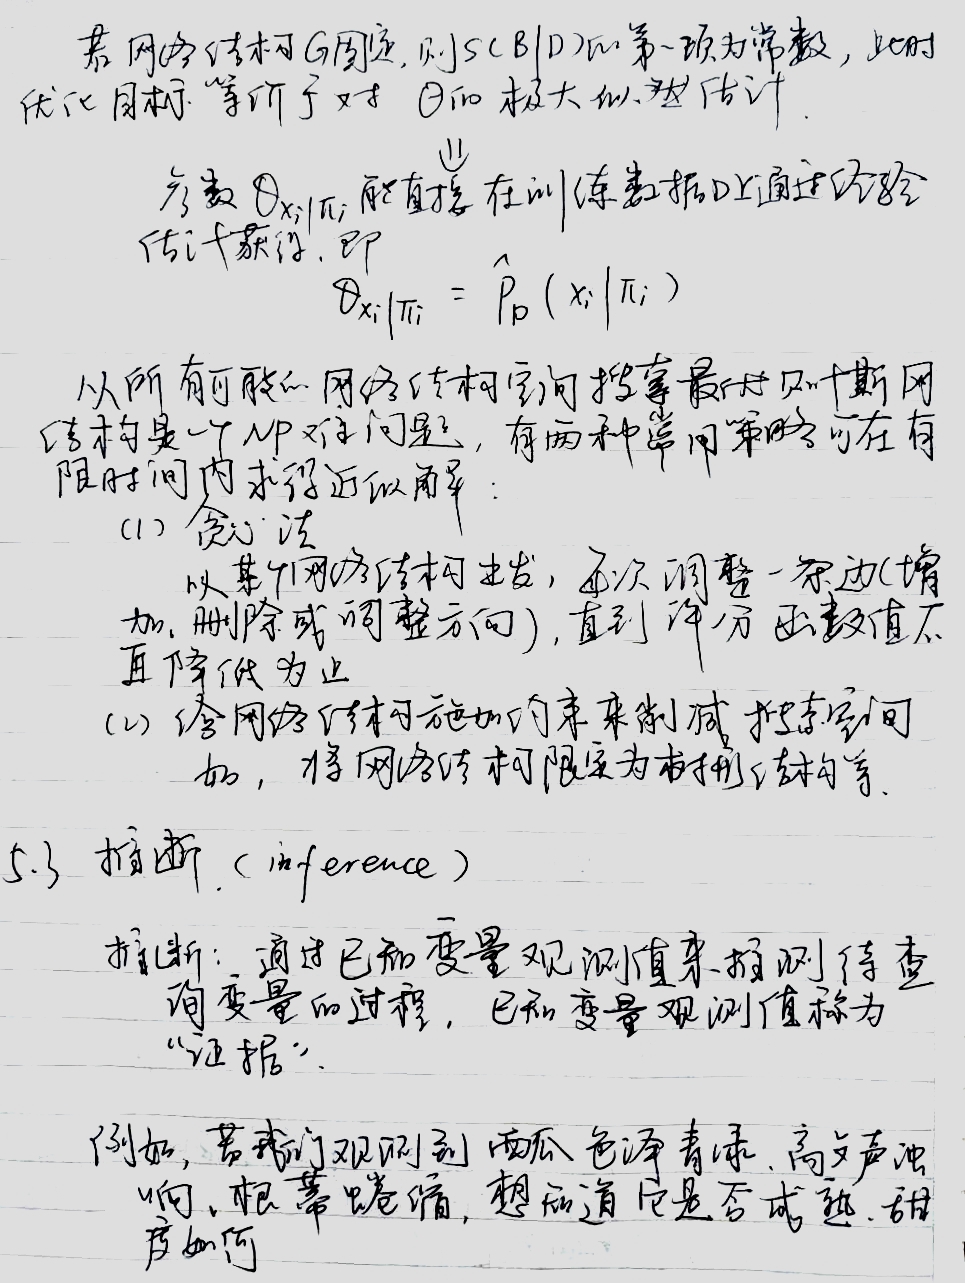 若网络结构G固定,则s(B|D)的第一项为常数,此时
优化目标等价于对 θ的极大似然估计.
⇓
参数θxi|πi能直接在训练数据D上通过经验
估计获得.即
θxi|πi = P̂D(xi|πi)
从所有可能的网络结构空间搜索最优贝叶斯网
结构是一个NP难问题,有两种常用策略可在有
限时间内求得近似解:
(1) 贪心法
以某个网络结构出发,每次调整一条边(增
加、删除或调整方向),直到评分函数值不
再降低为止
(2) 给网络结构施加约束来削减搜索空间
如,将网络结构限定为树形结构等.
5.3 推断.(inference)
推断: 通过已知变量观测值来推测待查
询变量的过程,已知变量观测值称为
“证据”.
例如,若我们观测到西瓜色泽青绿、敲声浊
响、根蒂蜷缩,想知道它是否成熟、甜
度如何